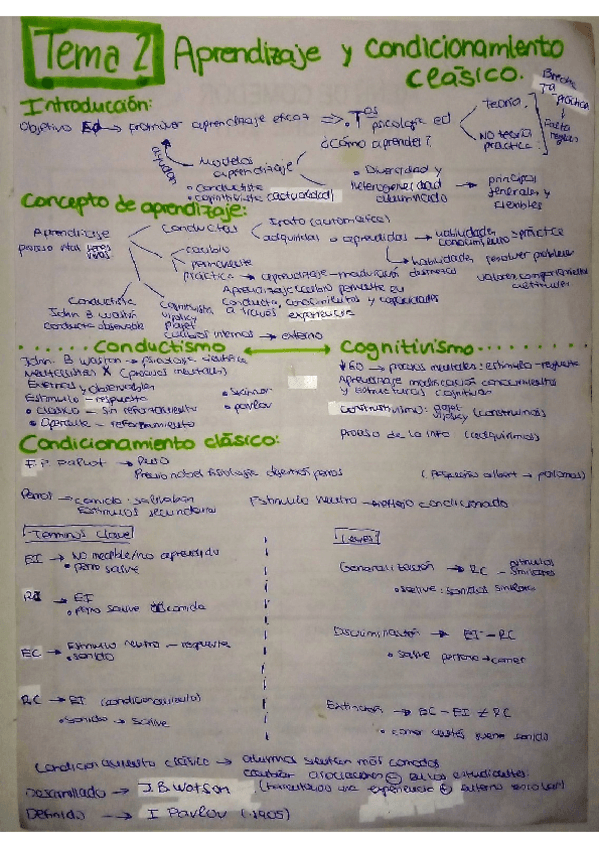 Tema 2 Aprendizaje y condicionamiento
clásico.
Introducción:
Objetivo Ed → promover aprendizaje eficaz ⇒ .Tas psicología ed
Teoría
NO teoría
práctica
Brecha
Ta
práctica
Falta
ayudan
¿Cómo aprender?
Modelos
aprendizaje
• Conductista
• cognitivista (actualidad)
• Diversidad y
heterogeneidad
alumnado
→ principios
generales y
flexibles
Concepto de aprendizaje:
Aprendizaje
proceso
Conductas
Inato (automática)
adquiridas o aprendidas → habilidades, conocimiento = práctica
→ habilidades, resolver problemas
cambio
permanente
práctica → aprendizaje – maduración
valores comportamientos
Aprendizaje cambio permanente en
conducta, conocimientos y capacidades
a través experiencia
Conductista
John B watson
conducta observable
Cognitivista
vigosky
piaget
cambios internos → externo
Conductismo
Cognitivismo
John. B Waston → psicología científica
Mentalistas X (procesos mentales)
Externos y observables
Estimulo – respuesta
• clásico – sin reforzamiento
• Operante – reforzamiento
• skinner
• pavlov
↓ 60 → procesos mentales: estimulo – respuesta
Aprendizaje modificación conocimientos
y estructuras cognitivas
Constructivismo: piaget (construimos)
Proceso de la info (adquirimos)
Condicionamiento clásico:
→ Ruso
Premio nobel fisiología digestión perros
(Pequeño albert → palomas)
Perros → comida: salivaban
Estímulos secundarios
Estimulo neutro → reflejo condicionado
Términos clave
EI → No medible/no aprendido
• perro salive
RI → EI
• perro salive comida
EC → Estimulo neutro – respuesta
• sonido
RC → EI (condicionamiento)
• sonido → salive
Leyes
Generalización → RC – estímulos similares
• salive: sonidos similares
Discriminación → EI – RC
• salive persona → comer
Extinción → EC – EI ≠ RC
• comer suene sonido
Condicionamiento clásico → alumnos sientan más comodos
cambiar asociaciones ⊖ en los estudiantes.
Desarrollado → J.B Watson (fomentando una experiencia ⊕ entorno escolar)
Definido → I Pavlov (1905)